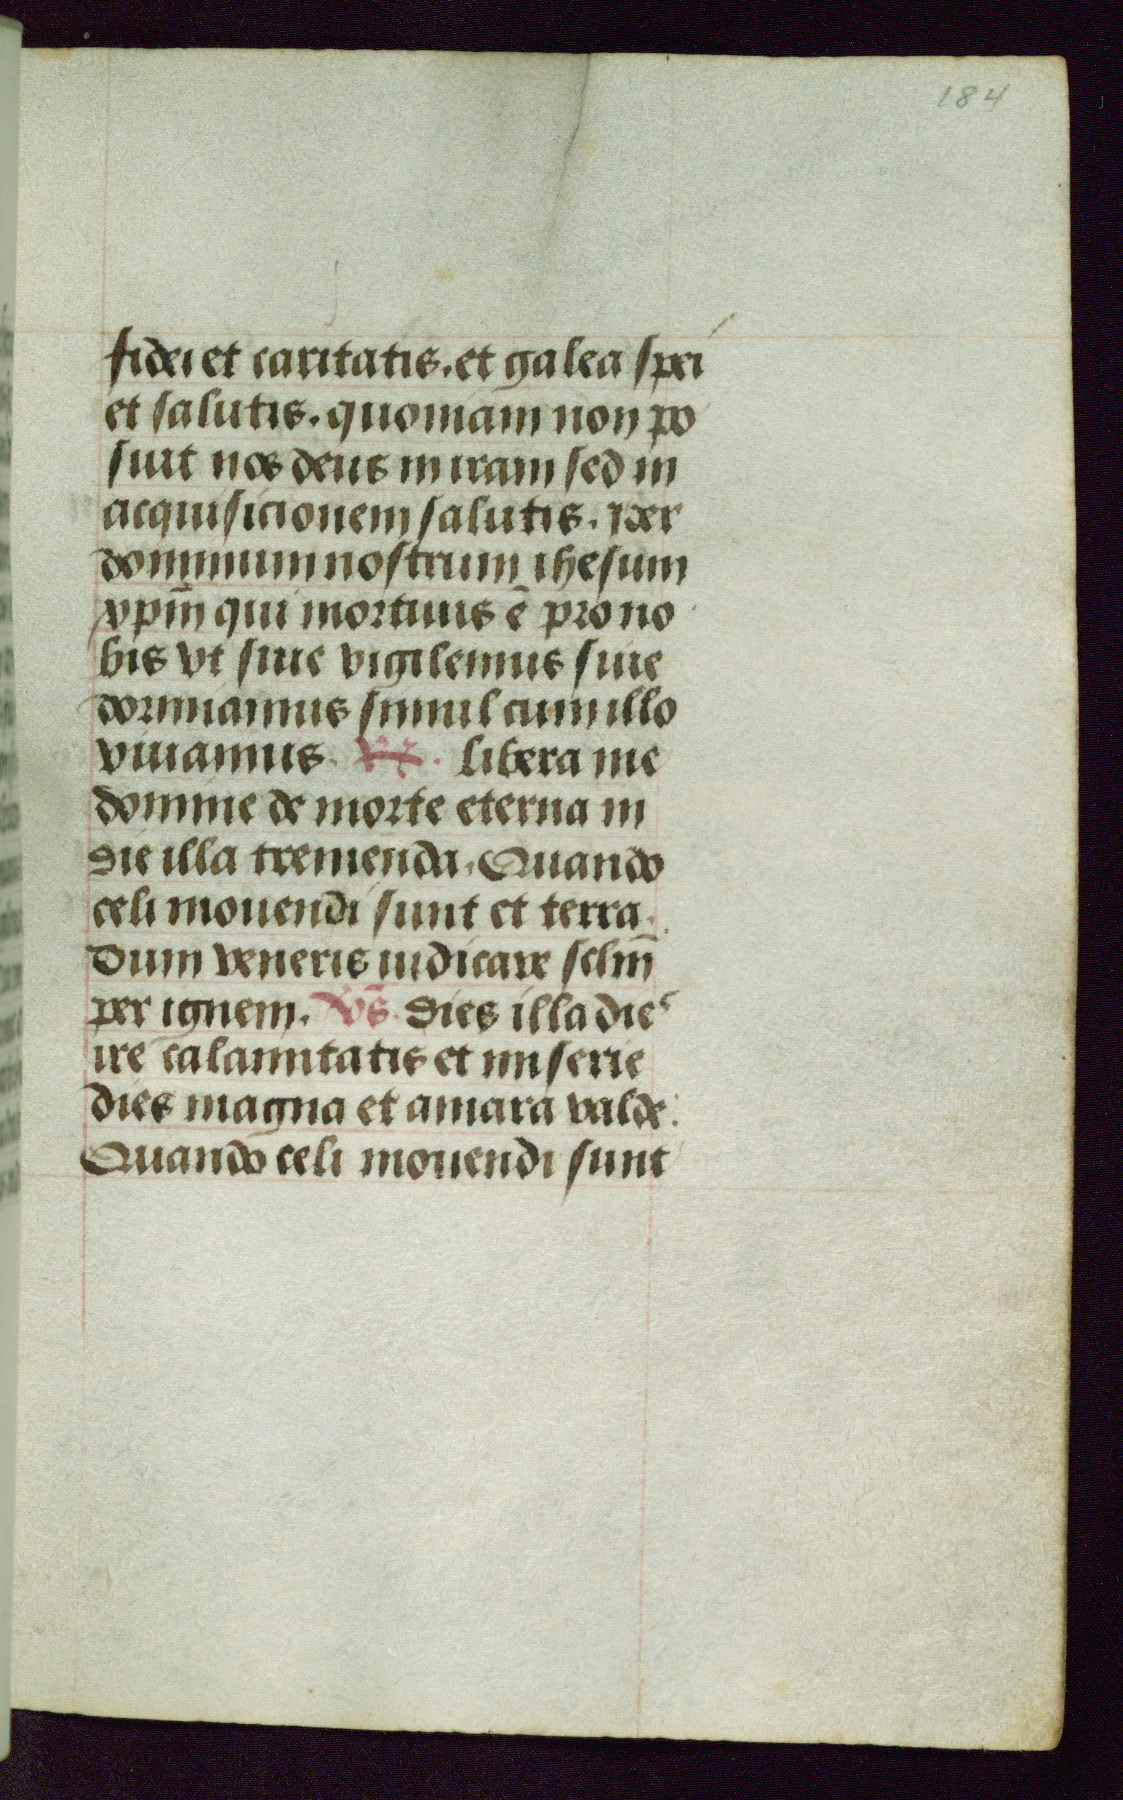 184
fidei et caritatis. et galea spei
et salutis. quoniam non po
suit nos deus in iram sed in
acquisicionem salutis. per
dominum nostrum ihesum
xpm̄ qui mortuus ē pro no
bis vt siue vigilemus siue
dormiamus simul cum illo
viuamus. libera me
domine de morte eterna in
die illa tremenda. Quando
celi mouendi sunt et terra.
Dum veneris iudicare sclm̄
per ignem. Vs̄. Dies illa dies
ire calamitatis et miserie
dies magna et amara valde.
Quando celi mouendi sunt